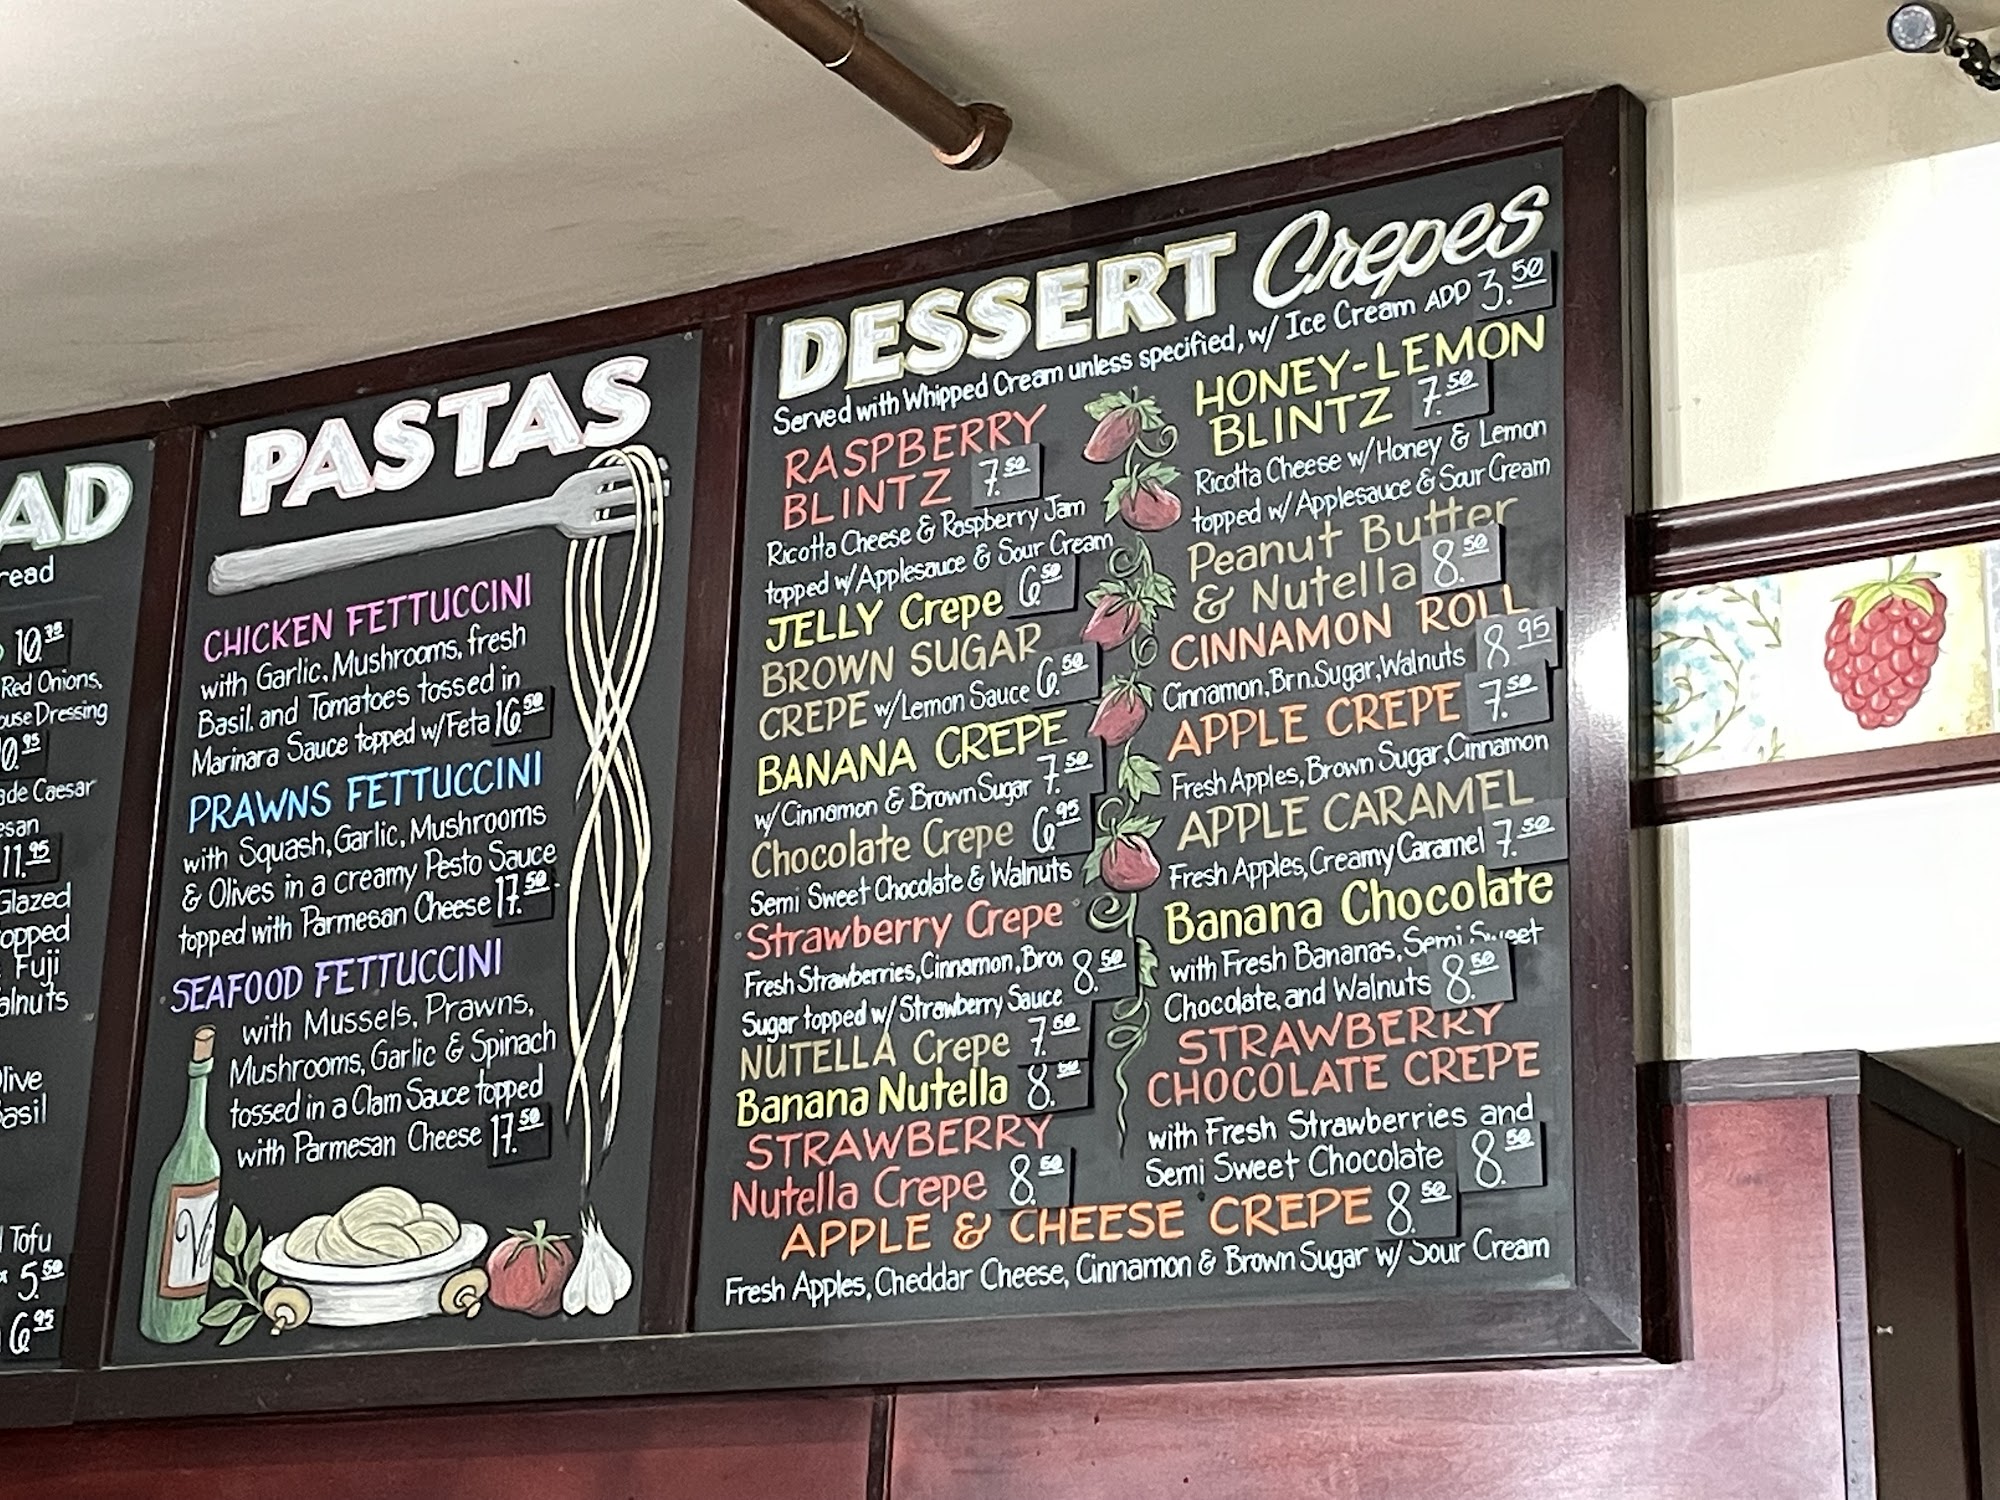 AD
read
10.
Red Onions,
Dressing
0.95
Caesar
11.95
Glazed
Fuji
Tofu
5.50
6.95
PASTAS
CHICKEN FETTUCCINI
with Garlic, Mushrooms, fresh
Basil, and Tomatoes tossed in
Marinara Sauce topped w/Feta 16.50
PRAWNS FETTUCCINI
with Squash, Garlic, Mushrooms
& Olives in a creamy Pesto Sauce
topped with Parmesan Cheese 17.50
SEAFOOD FETTUCCINI
with Mussels, Prawns,
Mushrooms, Garlic & Spinach
tossed in a Clam Sauce topped
with Parmesan Cheese 17.50
DESSERT Crepes
Served with Whipped Cream unless specified, w/ Ice Cream ADD 3.50
RASPBERRY
BLINTZ 7.50
Ricotta Cheese & Raspberry Jam
topped w/Applesauce & Sour Cream
JELLY Crepe 6.50
BROWN SUGAR
CREPE w/Lemon Sauce 6.50
BANANA CREPE
w/Cinnamon & Brown Sugar 7.50
Chocolate Crepe 6.95
Semi Sweet Chocolate & Walnuts
Strawberry Crepe
Fresh Strawberries, Cinnamon, 8.50
Sugar topped w/Strawberry Sauce
NUTELLA Crepe 7.50
Banana Nutella 8.50
STRAWBERRY
Nutella Crepe 8.50
HONEY-LEMON
BLINTZ 7.50
Ricotta Cheese w/Honey & Lemon
topped w/Applesauce & Sour Cream
Peanut Butter
& Nutella 8.50
CINNAMON ROLL
Cinnamon, Brn. Sugar, Walnuts 8.95
APPLE CREPE 7.50
Fresh Apples, Brown Sugar, Cinnamon
APPLE CARAMEL
Fresh Apples, Creamy Caramel 7.50
Banana Chocolate
with Fresh Bananas, Semi Sweet
Chocolate, and Walnuts 8.50
STRAWBERRY
CHOCOLATE CREPE
with Fresh Strawberries and
Semi Sweet Chocolate 8.50
APPLE & CHEESE CREPE 8.50
Fresh Apples, Cheddar Cheese, Cinnamon & Brown Sugar w/ Sour Cream